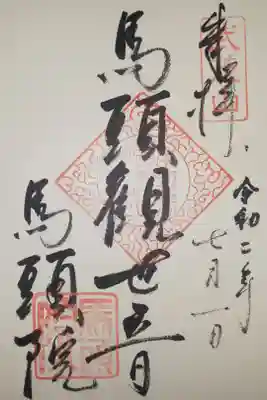 奉拝
令和二年
七月一日
馬頭観世音
馬頭院